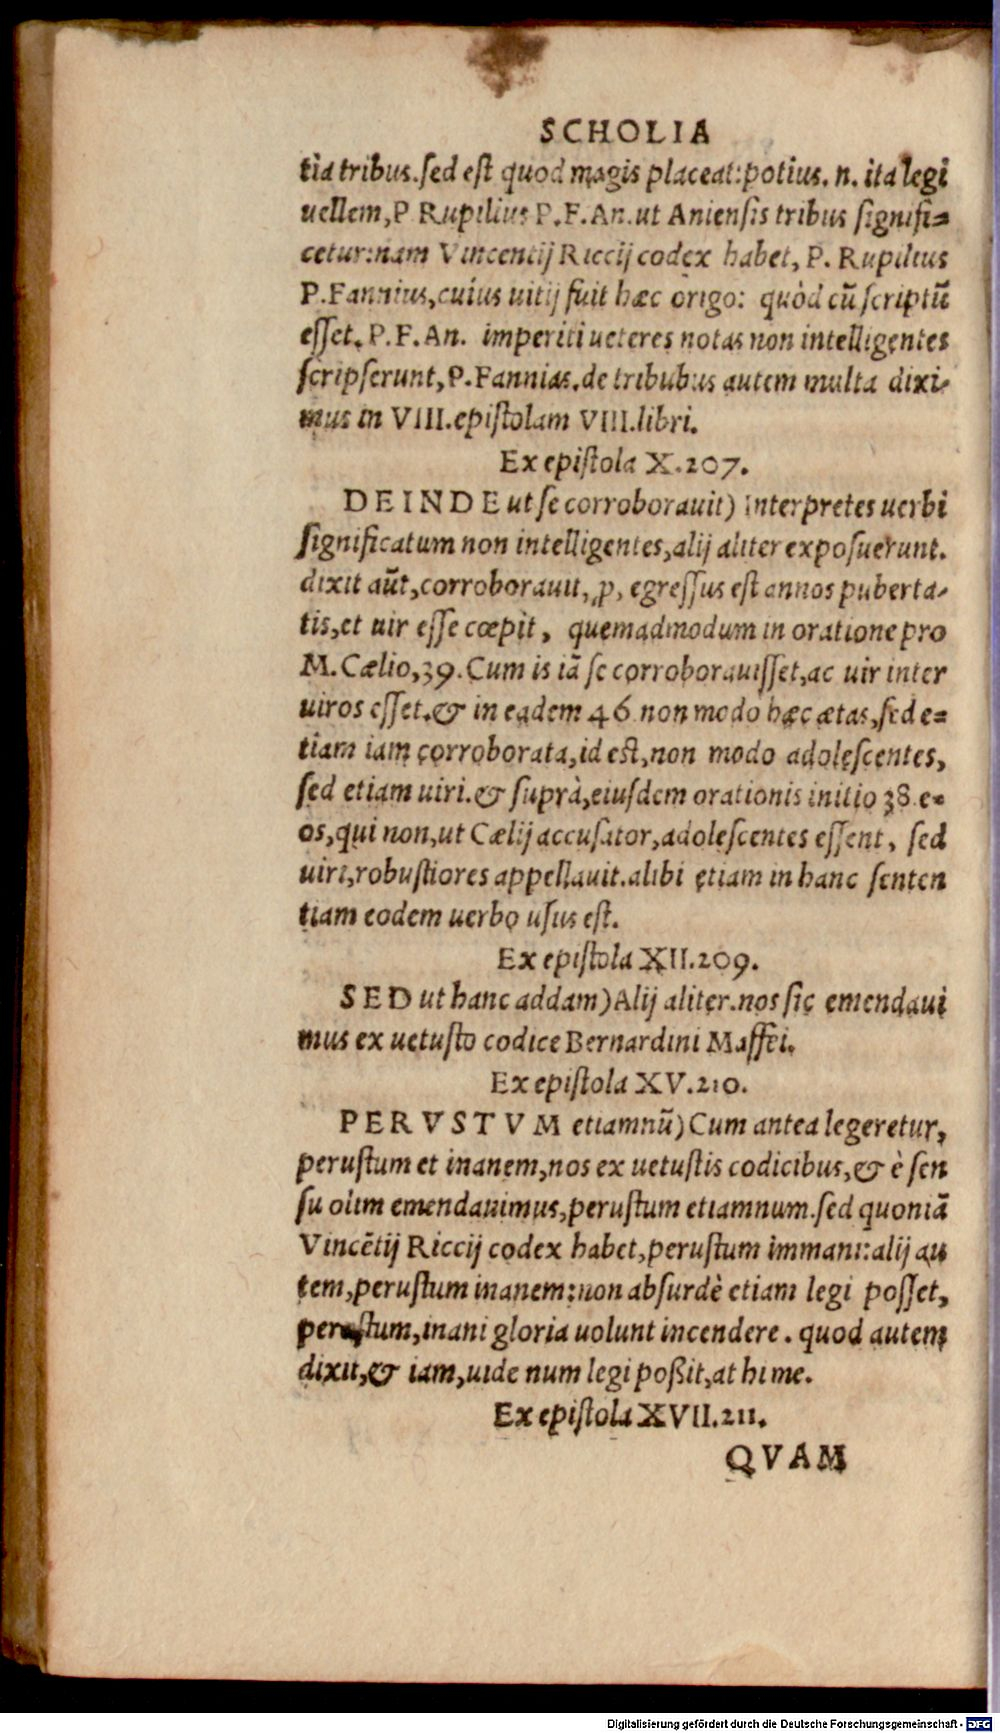 SCHOLIA
tia tribus.sed est quod magis placeat:potius. n. ita legi
uellem,P Rupilius P.F.An.ut Aniensis tribus signifi=
cetur:nam Vincentij Riccij codex habet, P. Rupilius
P.Fannius,cuius uitij fuit hæc origo: quòd cū scriptū
esset. P.F.An. imperiti ueteres notas non intelligentes
scripserunt, P.Fannias.de tribubus autem multa dixi-
mus in VIII.epistolam VIII.libri.
Ex epistola X.207.
DEINDE ut se corroborauit) Interpretes uerbi
significatum non intelligentes,alij aliter exposuerunt.
dixit aūt,corroborauit, ꝓ, egressus est annos puberta-
tis,et uir esse cœpit, quemadmodum in oratione pro
M.Cælio,39.Cum is iā se corroborauisset,ac uir inter
uiros esset.& in eadem 46 non modo hæc ætas,sed e=
tiam iam corroborata,id est,non modo adolescentes,
sed etiam uiri.& suprà,eiusdem orationis initio 38.e-
os,qui non,ut Cælij accusator,adolescentes essent, sed
uiri,robustiores appellauit.alibi etiam in hanc senten
tiam eodem uerbo usus est.
Ex epistola XII.209.
SED ut hanc addam) Alij aliter.nos sic emendaui
mus ex uetusto codice Bernardini Maffei.
Ex epistola XV.210.
PERVSTVM etiamnū) Cum antea legeretur,
perustum et inanem,nos ex uetustis codicibus,& è sen
su olim emendauimus,perustum etiamnum.sed quoniā
Vincētij Riccij codex habet,perustum immani:alij au
tem,perustum inanem:non absurdè etiam legi posset,
perustum,inani gloria uolunt incendere. quod autem
dixit,& iam,uide num legi poßit,at hi me.
Ex epistola XVII.211.
QVAM
Digitalisierung gefördert durch die Deutsche Forschungsgemeinschaft - DFG